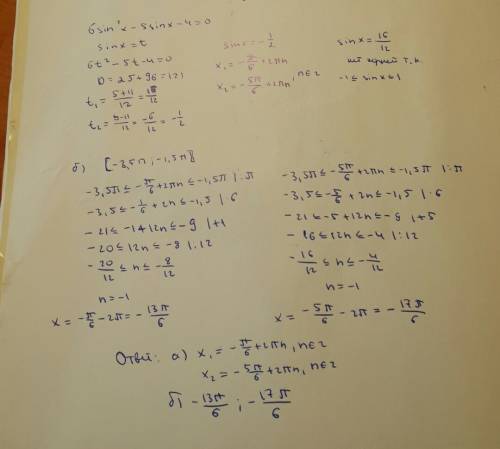 6sin²x - 5sinx - 4 = 0
sinx = t
6t² - 5t - 4 = 0
D = 25 + 96 = 121
t₁ = (5+11)/12 = 16/12
t₂ = (5-11)/12 = -6/12 = -1/2
sinx = -1/2
x₁ = -π/6 + 2πn
x₂ = -5π/6 + 2πn, n∈z
sinx = 16/12
нет корней т.к.
-1 ≤ sinx ≤ 1
б) [-3,5π; -1,5π]
-3,5π ≤ -π/6 + 2πn ≤ -1,5π |:π
-3,5 ≤ -1/6 + 2n ≤ -1,5 |·6
-21 ≤ -1 + 12n ≤ -9 |+1
-20 ≤ 12n ≤ -8 |:12
-20/12 ≤ n ≤ -8/12
n = -1
x = -π/6 - 2π = -13π/6
-3,5π ≤ -5π/6 + 2πn ≤ -1,5π |:π
-3,5 ≤ -5/6 + 2n ≤ -1,5 |·6
-21 ≤ -5 + 12n ≤ -9 |+5
-16 ≤ 12n ≤ -4 |:12
-16/12 ≤ n ≤ -4/12
n = -1
x = -5π/6 - 2π = -17π/6
Ответ: а) x₁ = -π/6 + 2πn, n∈z
x₂ = -5π/6 + 2πn, n∈z
б) -13π/6 ; -17π/6